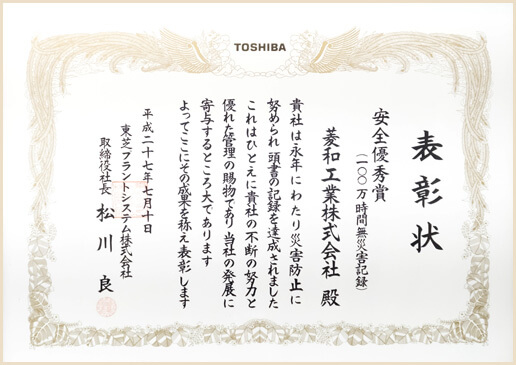 TOSHIBA
表彰状
安全優秀賞
(一〇〇万時間無災害記録)
菱和工業株式会社 殿
貴社は永年にわたり災害防止に
努められ頭書の記録を達成されました
これはひとえに貴社の不断の努力と
優れた管理の賜物であり当社の発展に
寄与するところ大であります
よってここにその成果を称え表彰します
平成二十七年七月十日
東芝プラントシステム株式会社
取締役社長 松川 良